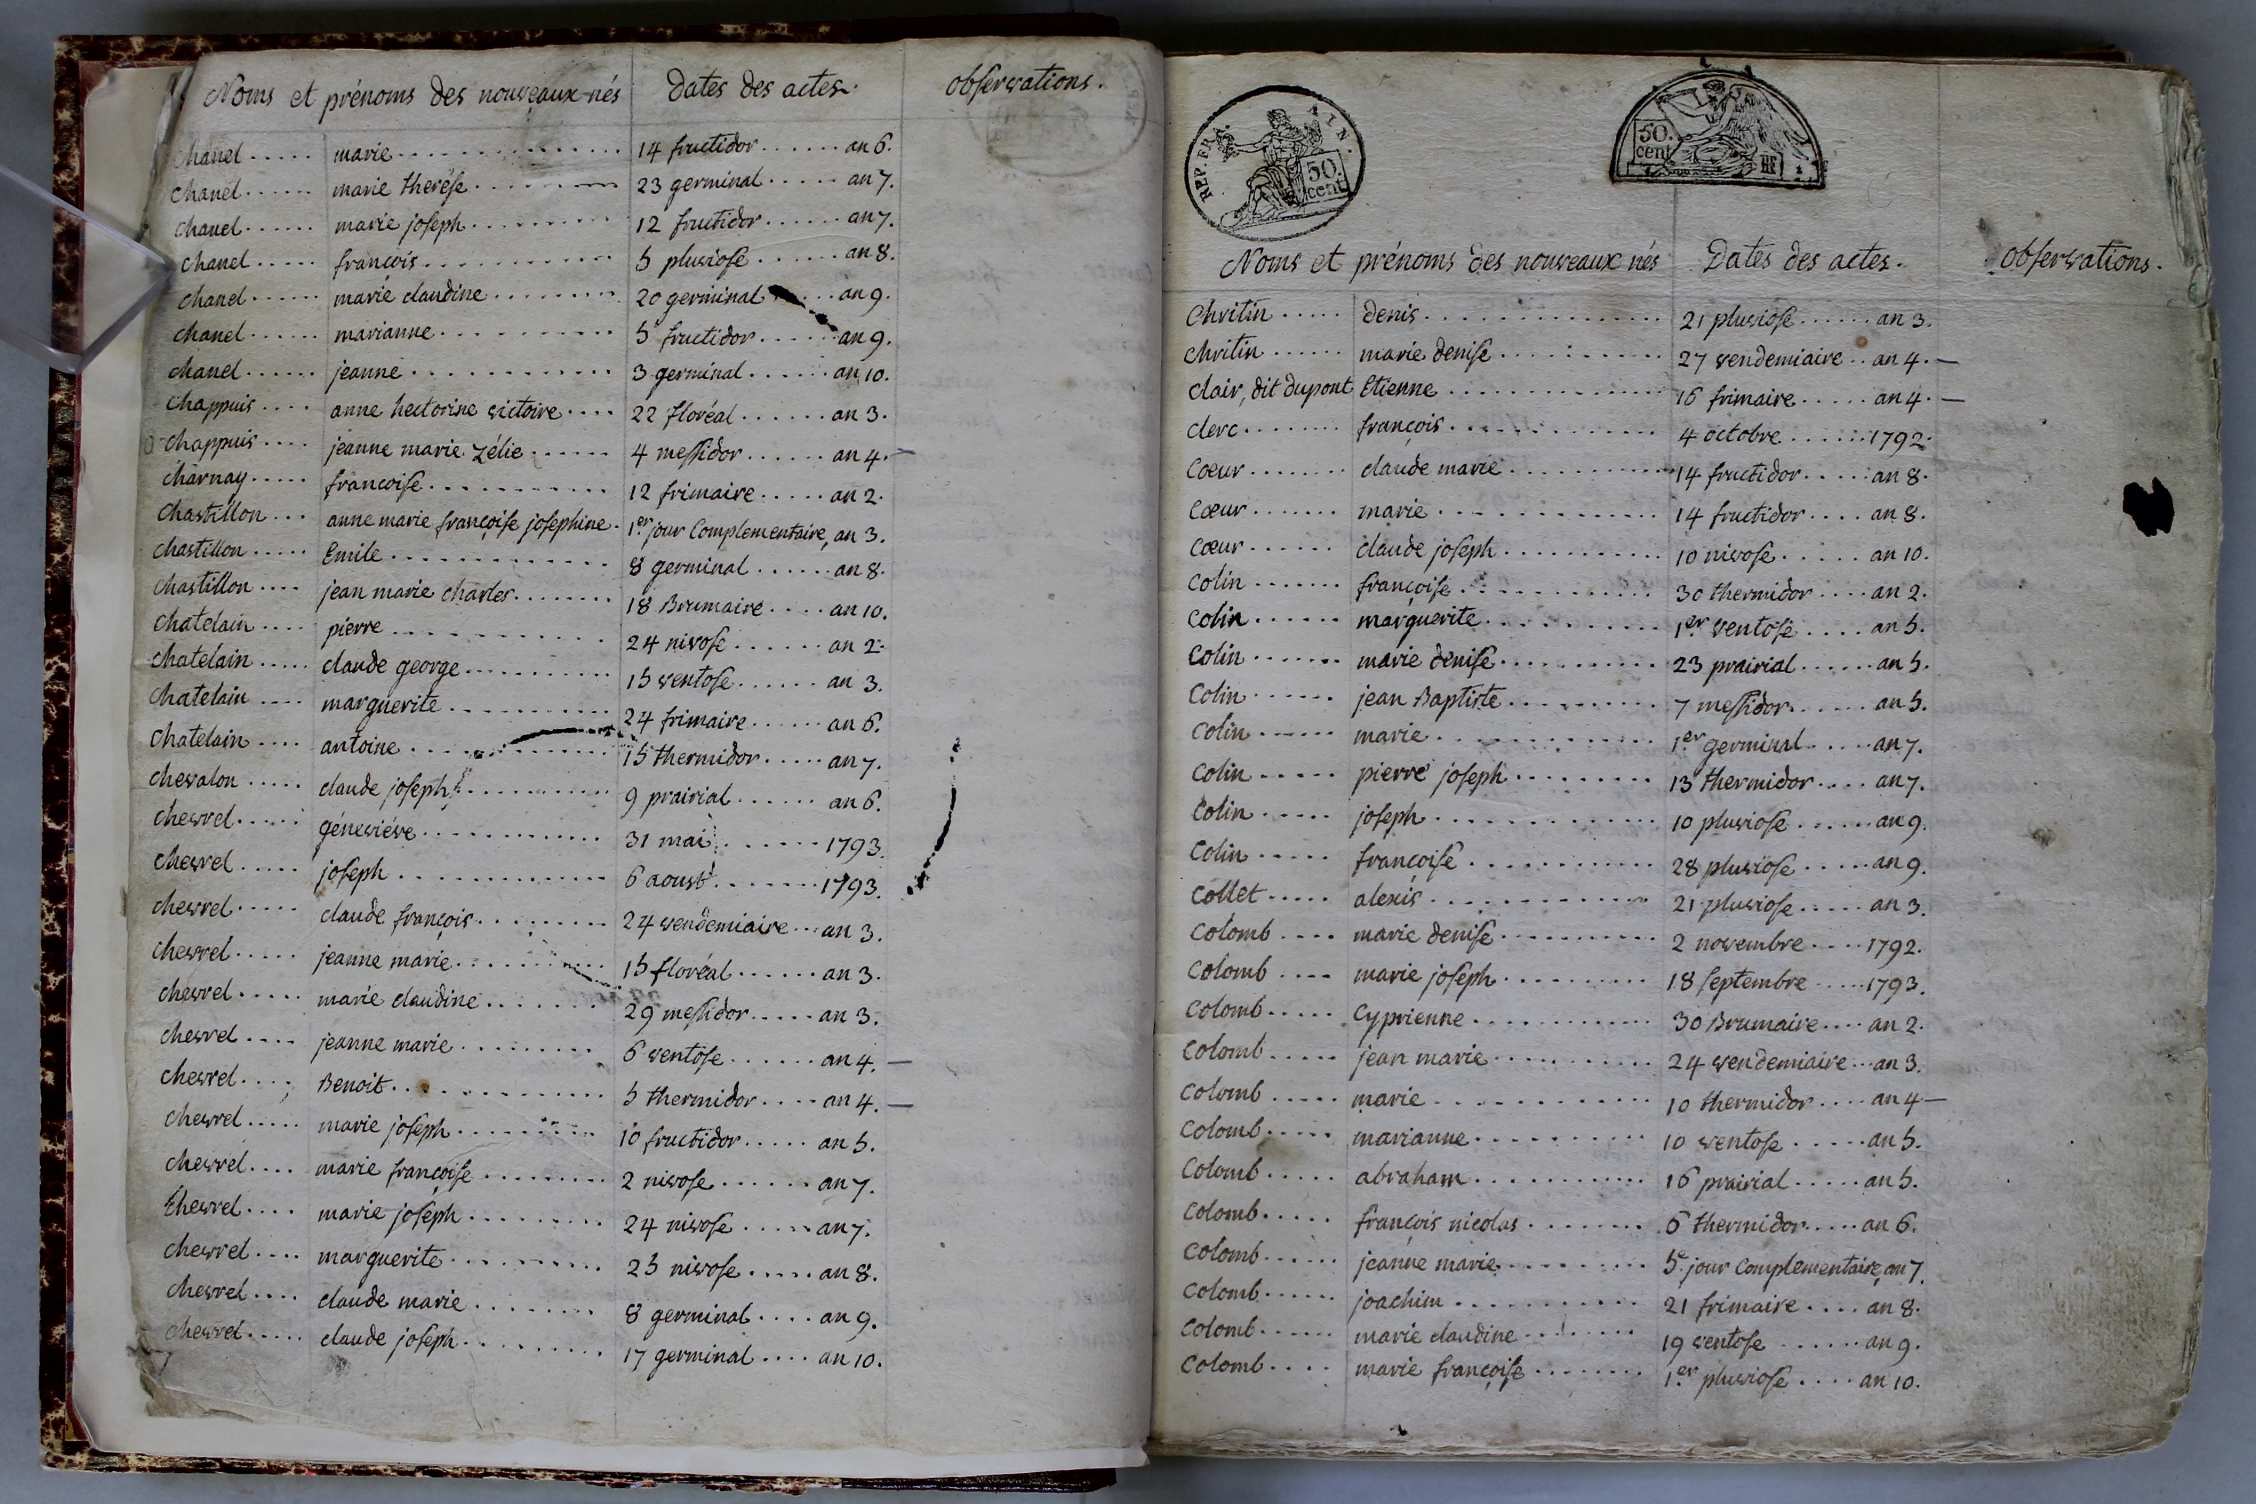 Noms et prénoms des nouveaux-nés Dates des actes. observations.
chanel ..... marie ..... 14 fructidor ..... an 6.
chanel ..... marie therése ..... 23 germinal ..... an 7.
chanel ..... marie joseph ..... 12 fructidor ..... an 7.
chanel ..... françois ..... 5 pluviose ..... an 8.
chanel ..... marie claudine ..... 20 germinal ..... an 9.
chanel ..... marianne ..... 5 fructidor ..... an 9.
chanel ..... jeanne ..... 3 germinal ..... an 10.
chappuis .... anne hectorine victoire .... 22 floréal ..... an 3.
chappuis .... jeanne marie zélie ..... 4 messidor ..... an 4. —
charnay ..... francoise ..... 12 frimaire ..... an 2.
chastillon ... anne marie françoise josephine . 1.er jour Complementaire, an 3.
chastillon ..... Emile ..... 8 germinal ..... an 8.
chastillon .... jean marie charles ..... 18 Brumaire .... an 10.
chatelain .... pierre ..... 24 nivose ..... an 2.
chatelain ..... claude george ..... 15 ventose ..... an 3.
chatelain .... marguerite ..... 24 frimaire ..... an 6.
chatelain .... antoine ..... 15 thermidor ..... an 7.
chevalon ..... claude joseph ..... 9 prairial ..... an 6.
chevrel ..... géneviéve ..... 31 mai ..... 1793.
chevrel ..... joseph ..... 6 aoust ..... 1793.
chevrel ..... claude françois ..... 24 vendemiaire ... an 3.
chevrel ..... jeanne marie ..... 15 floréal ..... an 3.
chevrel ..... marie claudine ..... 29 messidor ..... an 3.
chevrel .... jeanne marie ..... 6 ventose ..... an 4. —
chevrel .... Benoit ..... 5 thermidor .... an 4. —
chevrel ..... marie joseph ..... 10 fructidor ..... an 5.
chevrel .... marie françoise ..... 2 nivose ..... an 7.
chevrel .... marie joseph ..... 24 nivose ..... an 7.
chevrel .... marguerite ..... 25 nivose ..... an 8.
chevrel .... claude marie ..... 8 germinal .... an 9.
chevrel ..... claude joseph ..... 17 germinal .... an 10.
REP. FRA. 50. cent
50. cent
Noms et prénoms des nouveaux nés Dates des actes. observations.
chritin ..... denis ..... 21 pluviose ..... an 3.
chritin ..... marie denise ..... 27 vendemiaire .. an 4. —
clair, dit dupont Etienne ..... 16 frimaire ..... an 4. —
clerc ..... françois ..... 4 octobre ..... 1792.
Coeur ..... claude marie ..... 14 fructidor ..... an 8.
Coeur ..... marie ..... 14 fructidor .... an 8.
Coeur ..... claude joseph ..... 10 nivose ..... an 10.
Colin ..... françoise ..... 30 thermidor .... an 2.
Colin ..... marguerite ..... 1.er ventose .... an 5.
Colin ..... marie denise ..... 23 prairial ..... an 5.
Colin ..... jean Baptiste ..... 7 messidor ..... an 5.
Colin ..... marie ..... 1.er germinal ..... an 7.
Colin ..... pierre joseph ..... 13 thermidor .... an 7.
Colin ..... joseph ..... 10 pluviose ..... an 9.
Colin ..... françoise ..... 28 pluviose ..... an 9.
Collet ..... alexis ..... 21 pluviose ..... an 3.
Colomb .... marie denise ..... 2 novembre .... 1792.
Colomb .... marie joseph ..... 18 septembre ..... 1793.
Colomb ..... Cyprienne ..... 30 Brumaire .... an 2.
Colomb ..... jean marie ..... 24 vendemiaire ... an 3.
Colomb ..... marie ..... 10 thermidor .... an 4 —
Colomb ..... marianne ..... 10 ventose ..... an 5.
Colomb ..... abraham ..... 16 prairial ..... an 5.
Colomb ..... françois nicolas ..... 6 thermidor ..... an 6.
Colomb ..... jeanne marie ..... 5.e jour Complementaire, an 7.
Colomb ..... joachim ..... 21 frimaire .... an 8.
Colomb ..... marie claudine ..... 19 ventose ..... an 9.
Colomb .... marie françoise ..... 1.er pluviose .... an 10.